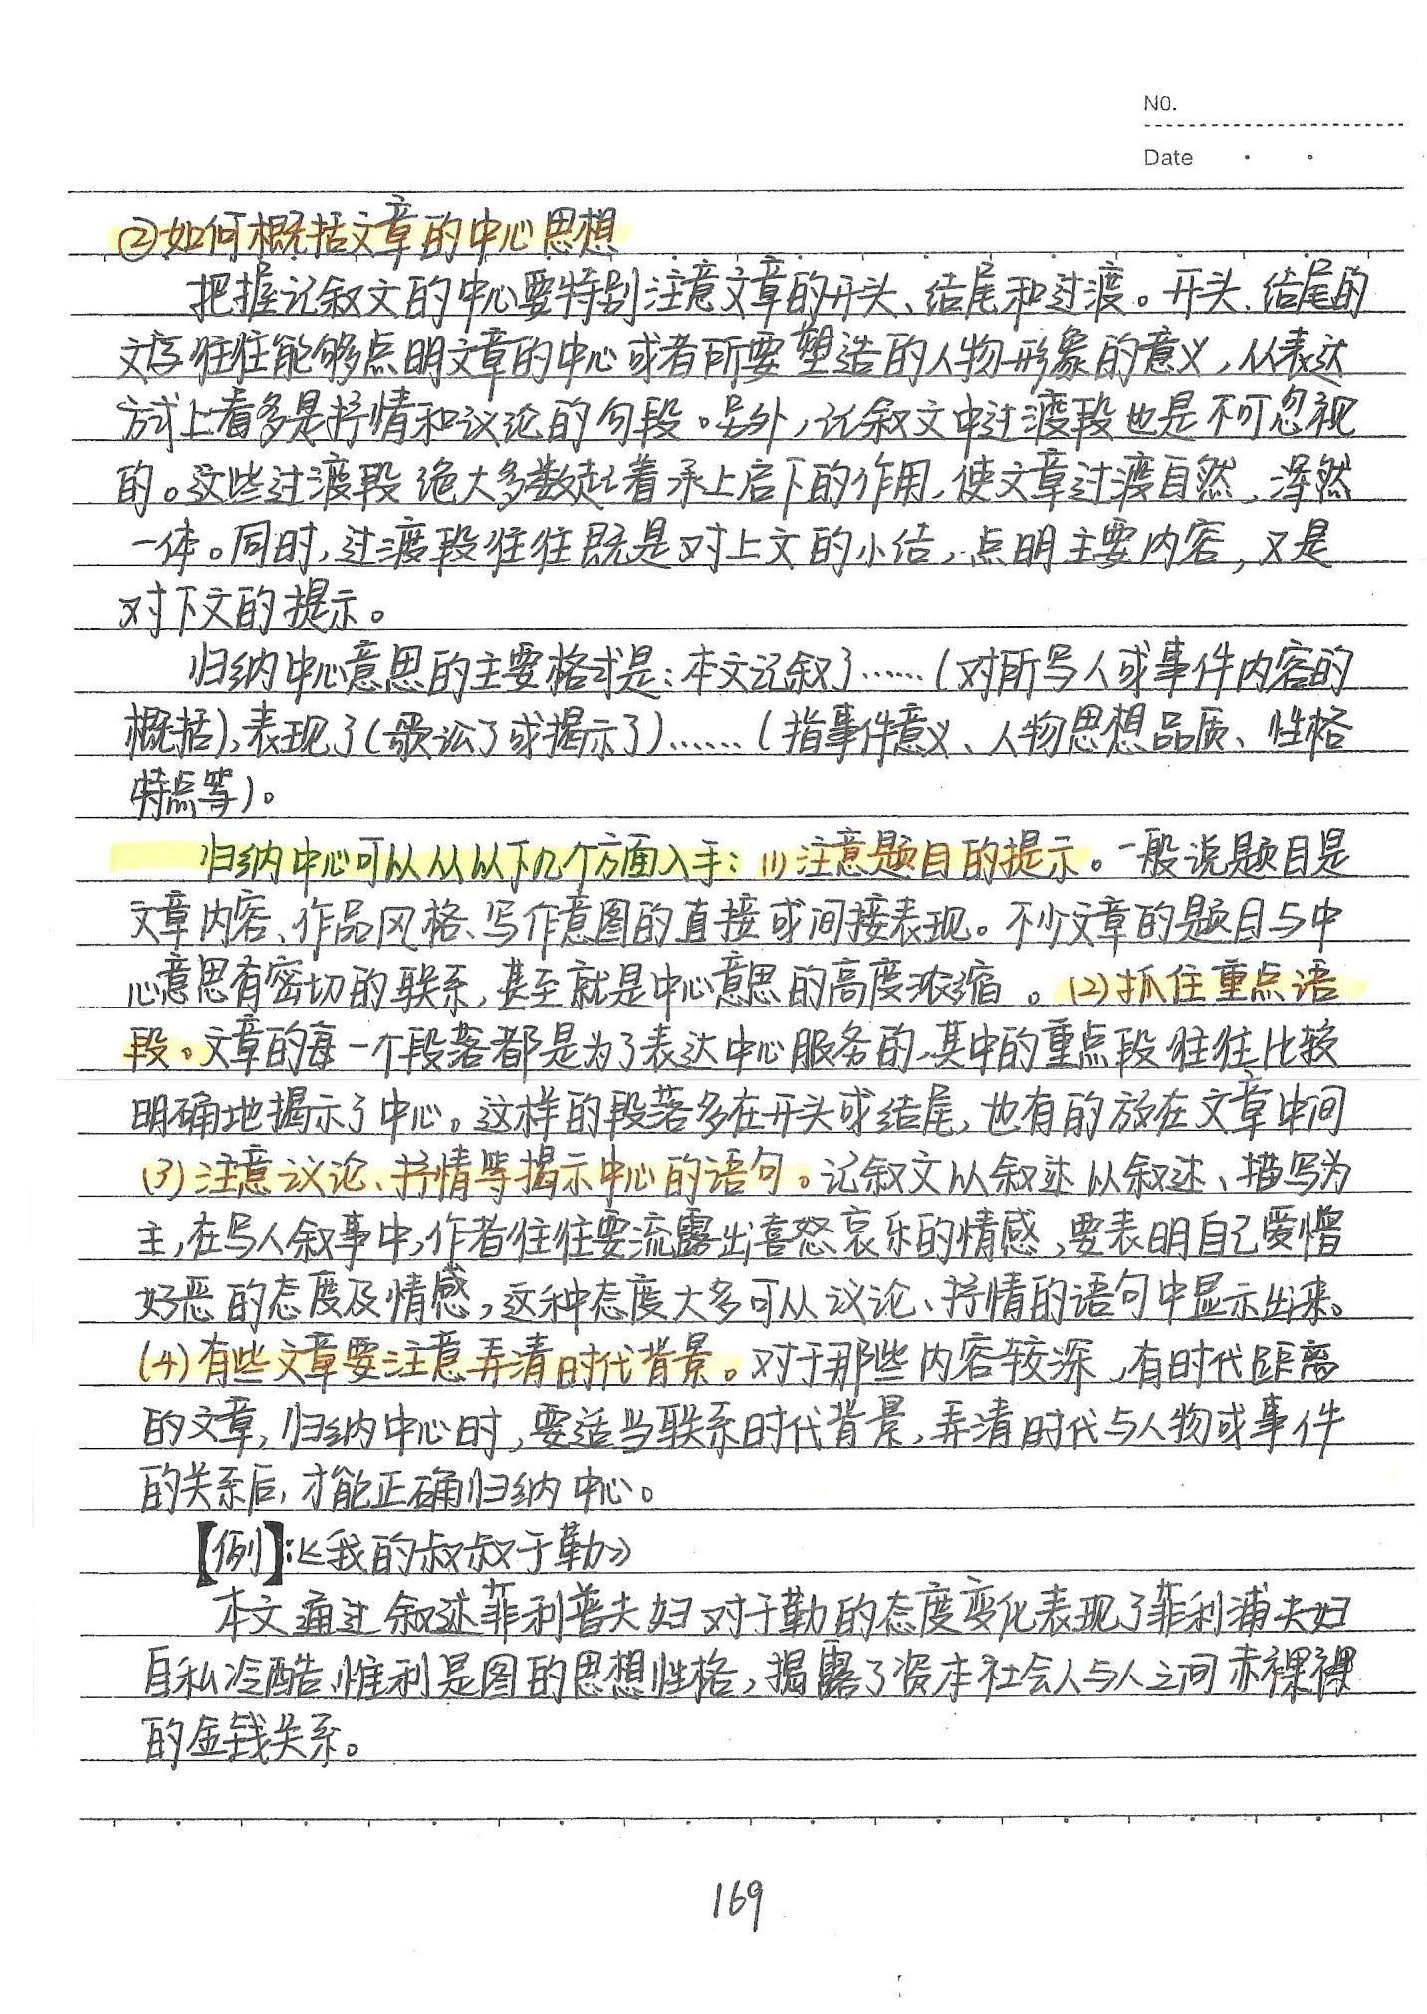 NO.
Date
②如何概括文章的中心思想
把握记叙文的中心要特别注意文章的开头、结尾和过渡。开头、结尾的
文字往往能够点明文章的中心或者所要塑造的人物形象的意义,从表达
方式上看多是抒情和议论的句段。另外,记叙文中过渡段也是不可忽视
的。这些过渡段绝大多数起着承上启下的作用,使文章过渡自然、浑然
一体。同时,过渡段往往既是对上文的小结,点明主要内容,又是
对下文的提示。
归纳中心意思的主要格式是:本文记叙了……(对所写人或事件内容的
概括),表现了(歌讼了或揭示了)……(指事件意义、人物思想品质、性格
特点等)。
归纳中心可以从从以下几个方面入手:(1)注意题目的提示。一般说题目是
文章内容、作品风格、写作意图的直接或间接表现。不少文章的题目与中
心意思有密切的联系,甚至就是中心意思的高度浓缩。(2)抓住重点语
段。文章的每一个段落都是为了表达中心服务的,其中的重点段往往比较
明确地揭示了中心。这样的段落多在开头或结尾,也有的放在文章中间
(3)注意议论、抒情等揭示中心的语句。记叙文以叙述以叙述、描写为
主,在写人叙事中,作者往往要流露出喜怒哀乐的情感,要表明自己爱憎
好恶的态度及情感,这种态度大多可从议论、抒情的语句中显示出来。
(4)有些文章要注意弄清时代背景。对于那些内容较深,有时代距离
的文章,归纳中心时,要适当联系时代背景,弄清时代与人物或事件
的关系后,才能正确归纳中心。
【例】:《我的叔叔于勒》
本文通过叙述菲利普夫妇对于勒的态度变化表现了菲利浦夫妇
自私冷酷,惟利是图的思想性格,揭露了资本社会人与人之间赤裸裸
的金钱关系。
169